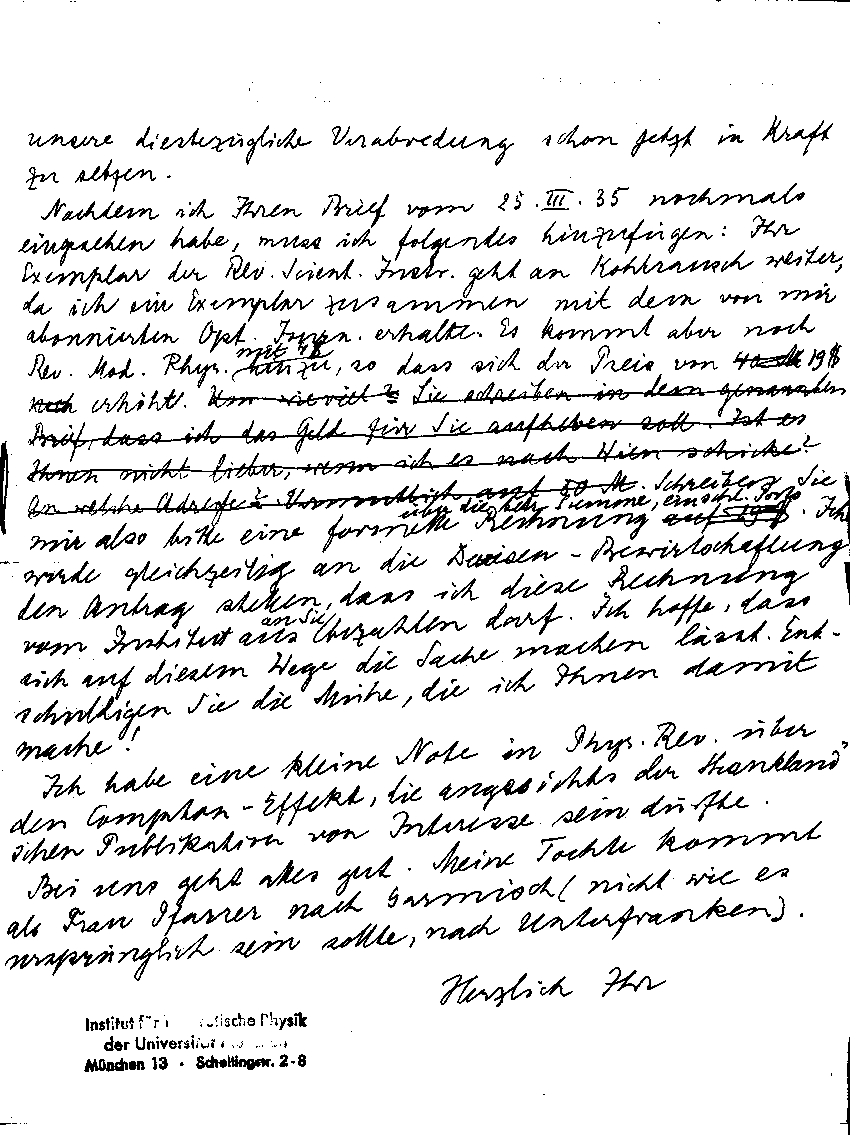 unsere diesbezügliche Verabredung schon jetzt in Kraft
zu setzen.
Nachdem ich Ihren Brief vom 25. III. 35 nochmals
eingesehen habe, muss ich folgendes hinzufügen: Ihr
Exemplar der Rev. Scient. Instr. geht an Kohlrausch weiter,
da ich ein Exemplar zusammen mit dem von mir
abonnierten Opt. Journ. erhalte. Es kommt aber noch
mit 4$
Rev. Mod. Phys. hinzu, so dass sich der Preis von 19$
noch erhöht. Um wieviel? Sie schreiben in dem genannten
Brief, dass ich das Geld für Sie aufheben soll. Ist es
Ihnen nicht lieber, wenn ich es nach Wien schicke?
An welche Adresse? Vermutlich auf 50 M. Schreiben Sie
über die betr. Summe, einschl. Porto
mir also bitte eine formelle Rechnung auf 19$. Ich
werde gleichzeitig an die Devisen-Bewirtschaftung
den Antrag stellen, dass ich diese Rechnung
an Sie
vom Institut aus bezahlen darf. Ich hoffe, dass
sich auf diesem Wege die Sache machen lässt. Ent-
schuldigen Sie die Mühe, die ich Ihnen damit
mache!
Ich habe eine kleine Note in Phys. Rev. über
den Compton-Effekt, die angesichts der Shankland'
schen Publikation von Interesse sein dürfte.
Bei uns geht alles gut. Meine Tochter kommt
als Frau Pfarrer nach Garmisch (nicht wie es
ursprünglich sein sollte, nach Unterfranken).
Herzlich Ihr
Institut für tische Physik
der Universität
München 13 • Schellingstr. 2-8